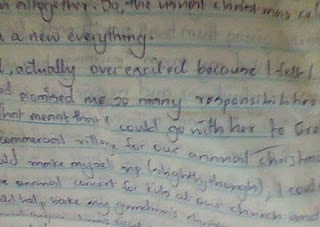 altogether. So, the usual christmas ca
a new everything.
, actually over excited because I felt I
promised me so many responsibilities
that meant that I could go with her to Gro
commercial village for our annual Christma
ld make myself up (slightly though), I coul
e annual concert for kids at our church and
ld help bake my grandma's